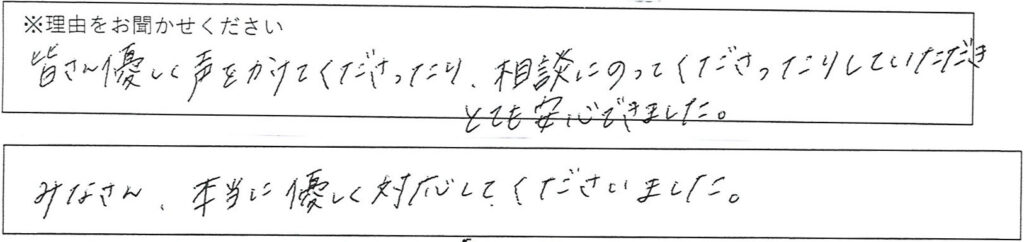 ※理由をお聞かせください
皆さん優しく声をかけてくださったり、相談にのってくださったりしていただき
とても安心できました。
みなさん、本当に優しく対応してくださいました。